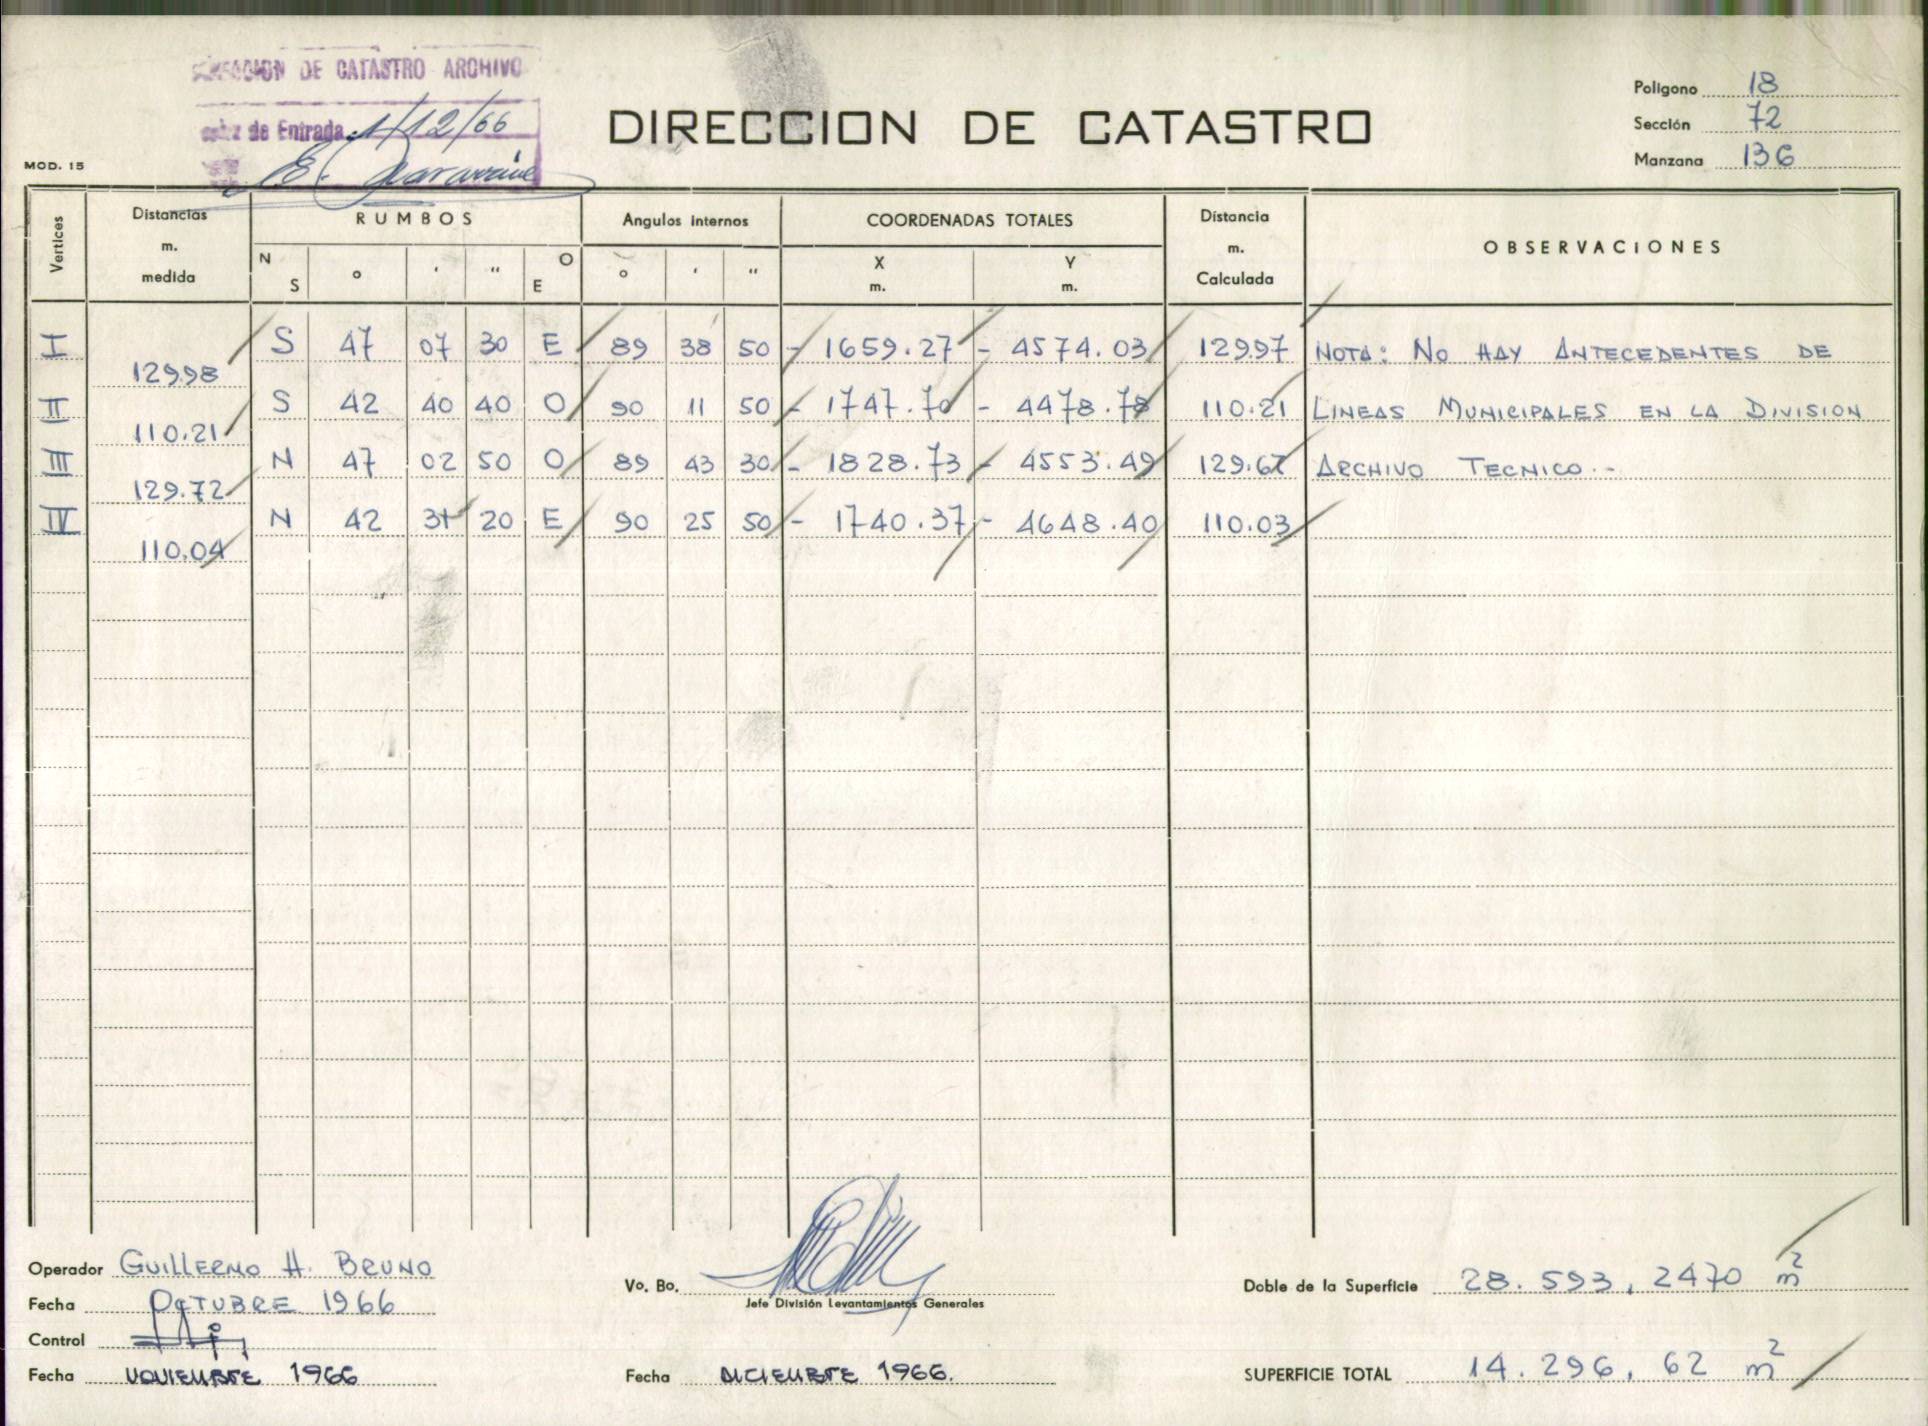 DIRECCION DE CATASTRO ARCHIVO
de Entrada 1/12/66
MOD. 15
DIRECCION DE CATASTRO
Poligono 18
Sección 72
Manzana 136
Vertices Distancias m. medida RUMBOS N S o ' " O E Angulos internos o ' " COORDENADAS TOTALES X m. Y m. Distancia m. Calculada OBSERVACIONES
I S 47 07 30 E 89 38 50 - 1659.27 - 4574.03 129.97 NOTA: NO HAY ANTECEDENTES DE
129.98
II S 42 40 40 O 90 11 50 - 1747.70 - 4478.78 110.21 LINEAS MUNICIPALES EN LA DIVISION
110.21
III N 47 02 50 O 89 43 30 - 1828.73 - 4553.49 129.67 ARCHIVO TECNICO.-
129.72
IV N 42 31 20 E 90 25 50 - 1740.37 - 4648.40 110.03
110.04
Operador GUILLERMO H. BRUNO
Fecha OCTUBRE 1966
Control
Fecha NOVIEMBRE 1966
Vo. Bo.
Jefe División Levantamientos Generales
Fecha DICIEMBRE 1966.
Doble de la Superficie 28.593,2470 m2
SUPERFICIE TOTAL 14.296,62 m2